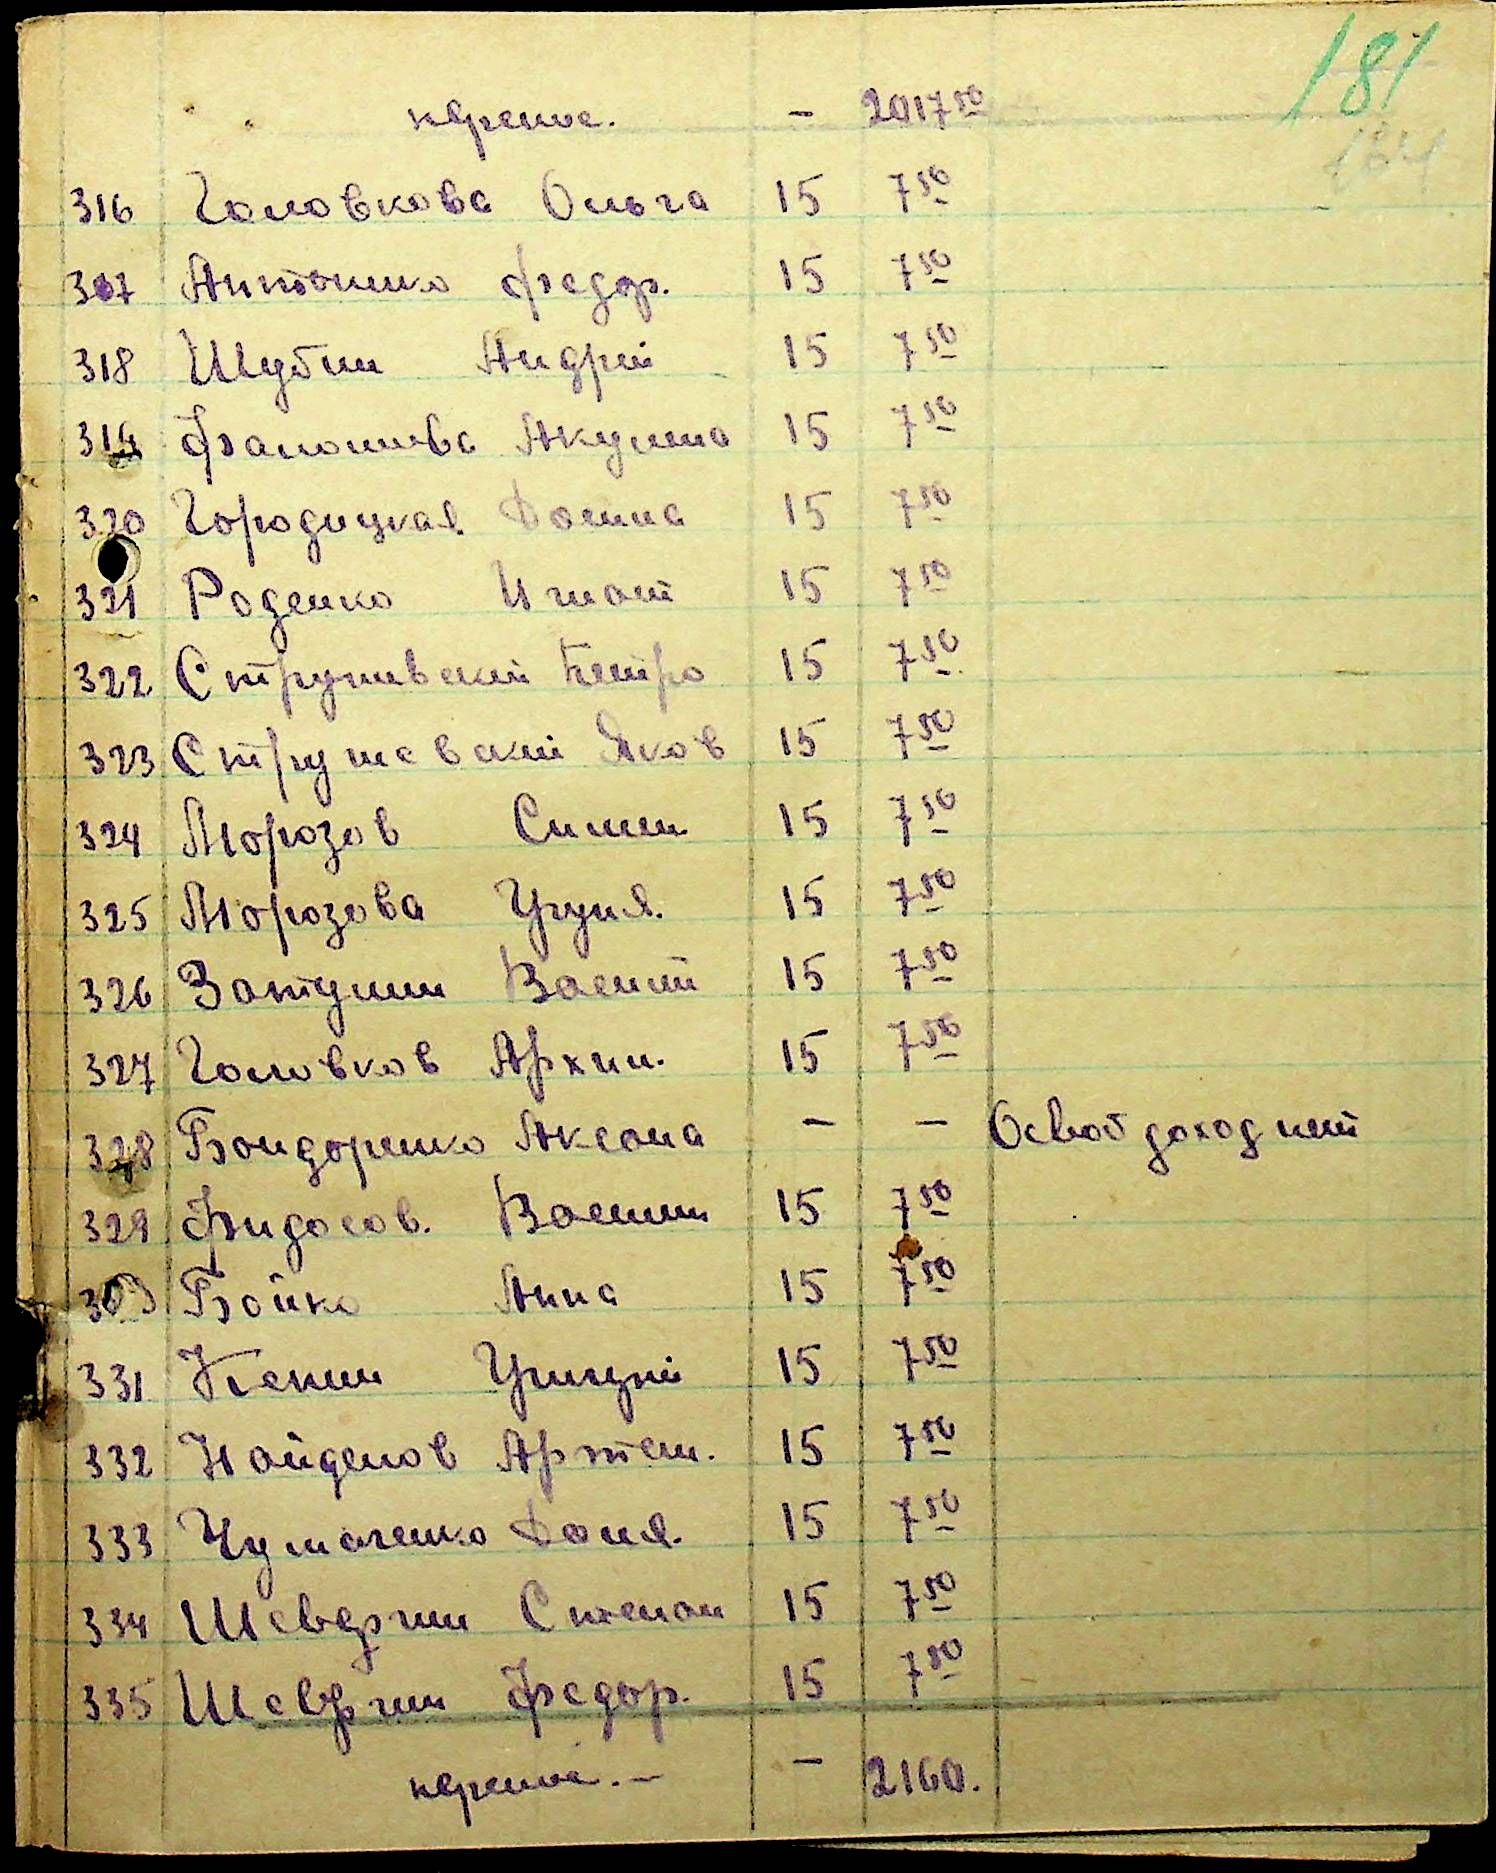 181
184
перенос. — 2017 50
316 Головкова Ольга 15 7 50
317 Антоненко Федор. 15 7 50
318 Шубин Андрій 15 7 50
319 Акулина 15 7 50
320 Городицкая Домна 15 7 50
321 Роденко Игнат 15 7 50
322 Струшевский Петро 15 7 50
323 Струшевский Яков 15 7 50
324 Морозов Симен. 15 7 50
325 Морозова Угуня. 15 7 50
326 Василий 15 7 50
327 Головков Архип. 15 7 50
328 Бондоренко Аксана — — Освоб доход нет
329 Фидосов. Василий 15 7 50
330 Бойко Анна 15 7 50
331 15 7 50
332 Найденов Артем. 15 7 50
333 Чумаченко Даня. 15 7 50
334 Шевергин Степан 15 7 50
335 Шевергин Федор. 15 7 50
перенос. — — 2160.